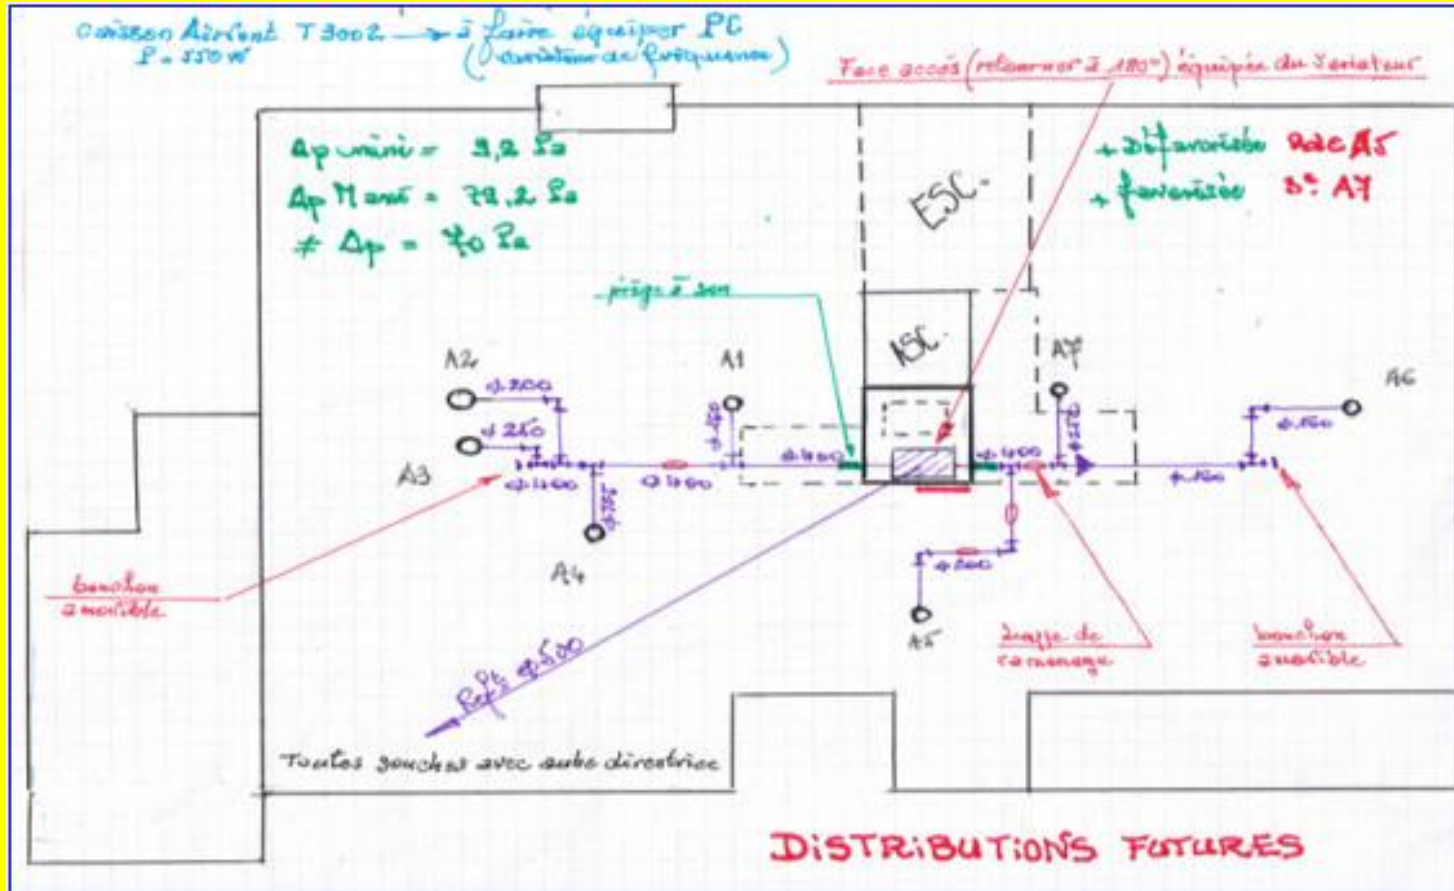 Caisson Airvent T3002 → à faire équiper PC
P = 550 W (variateur de fréquence)
Face accès (retourner à 180°) équipée du variateur
Δp mini = 9,2 Pa
Δp Maxi = 79,2 Pa
≠ Δp = 70 Pa
+ Défavorisée RdC A5
+ favorisée A7
ESC.
piège à son
ASC.
A2
A1
A7
A6
φ 200
φ 250
φ 160
φ 400
φ 400
φ 160
A3
φ 400
φ 400
φ 160
A4
φ 200
A5
bouchon
amovible
trappe de
ramonage
bouchon
amovible
φ 500
Toutes souches avec aube directrice
DiSTRiBUTiONS FUTURES